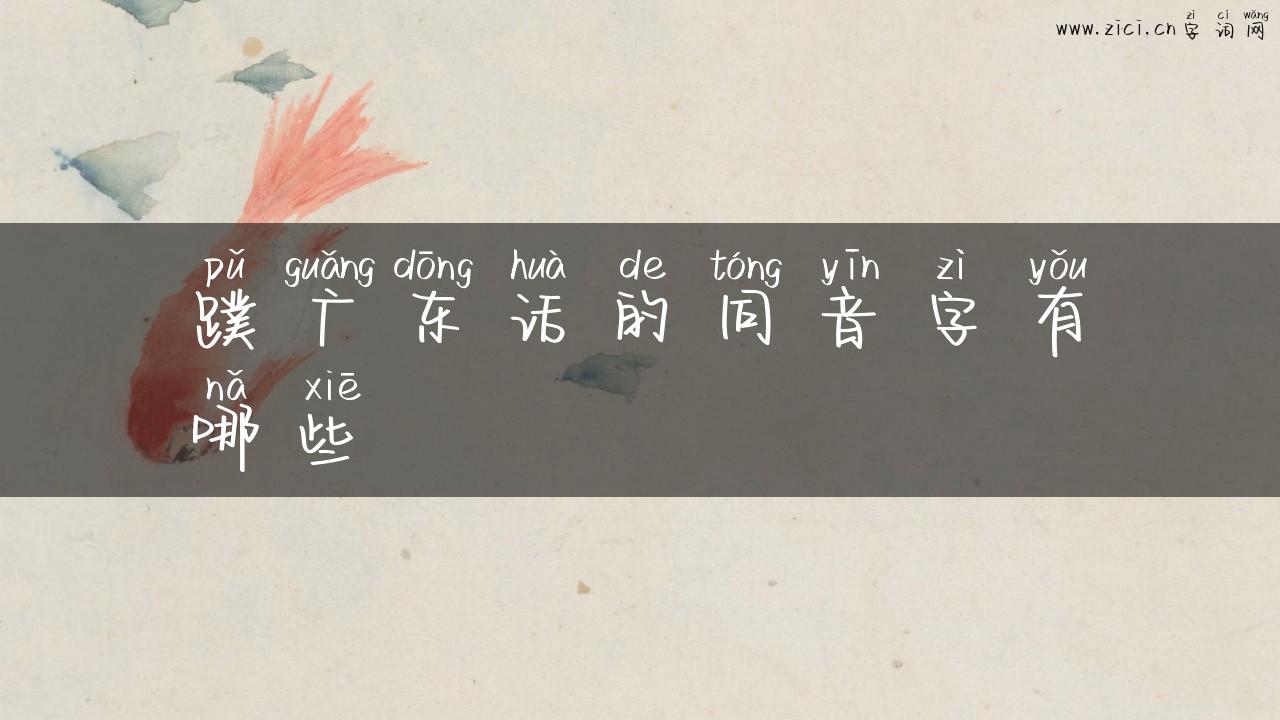 zì cí wǎng
www.zici.cn 字词网
pǔ guǎng dōng huà de tóng yīn zì yǒu
蹼广东话的同音字有
nǎ xiē
哪些